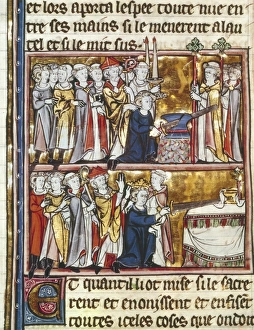 et lors aporta lespee toute nue en
tre ses mains si le menerent al au
tel et si le mit sus
Et quant il i ot mise si le sacre
rent et enoinssent et en fisent
toutes iceles coses que on doit